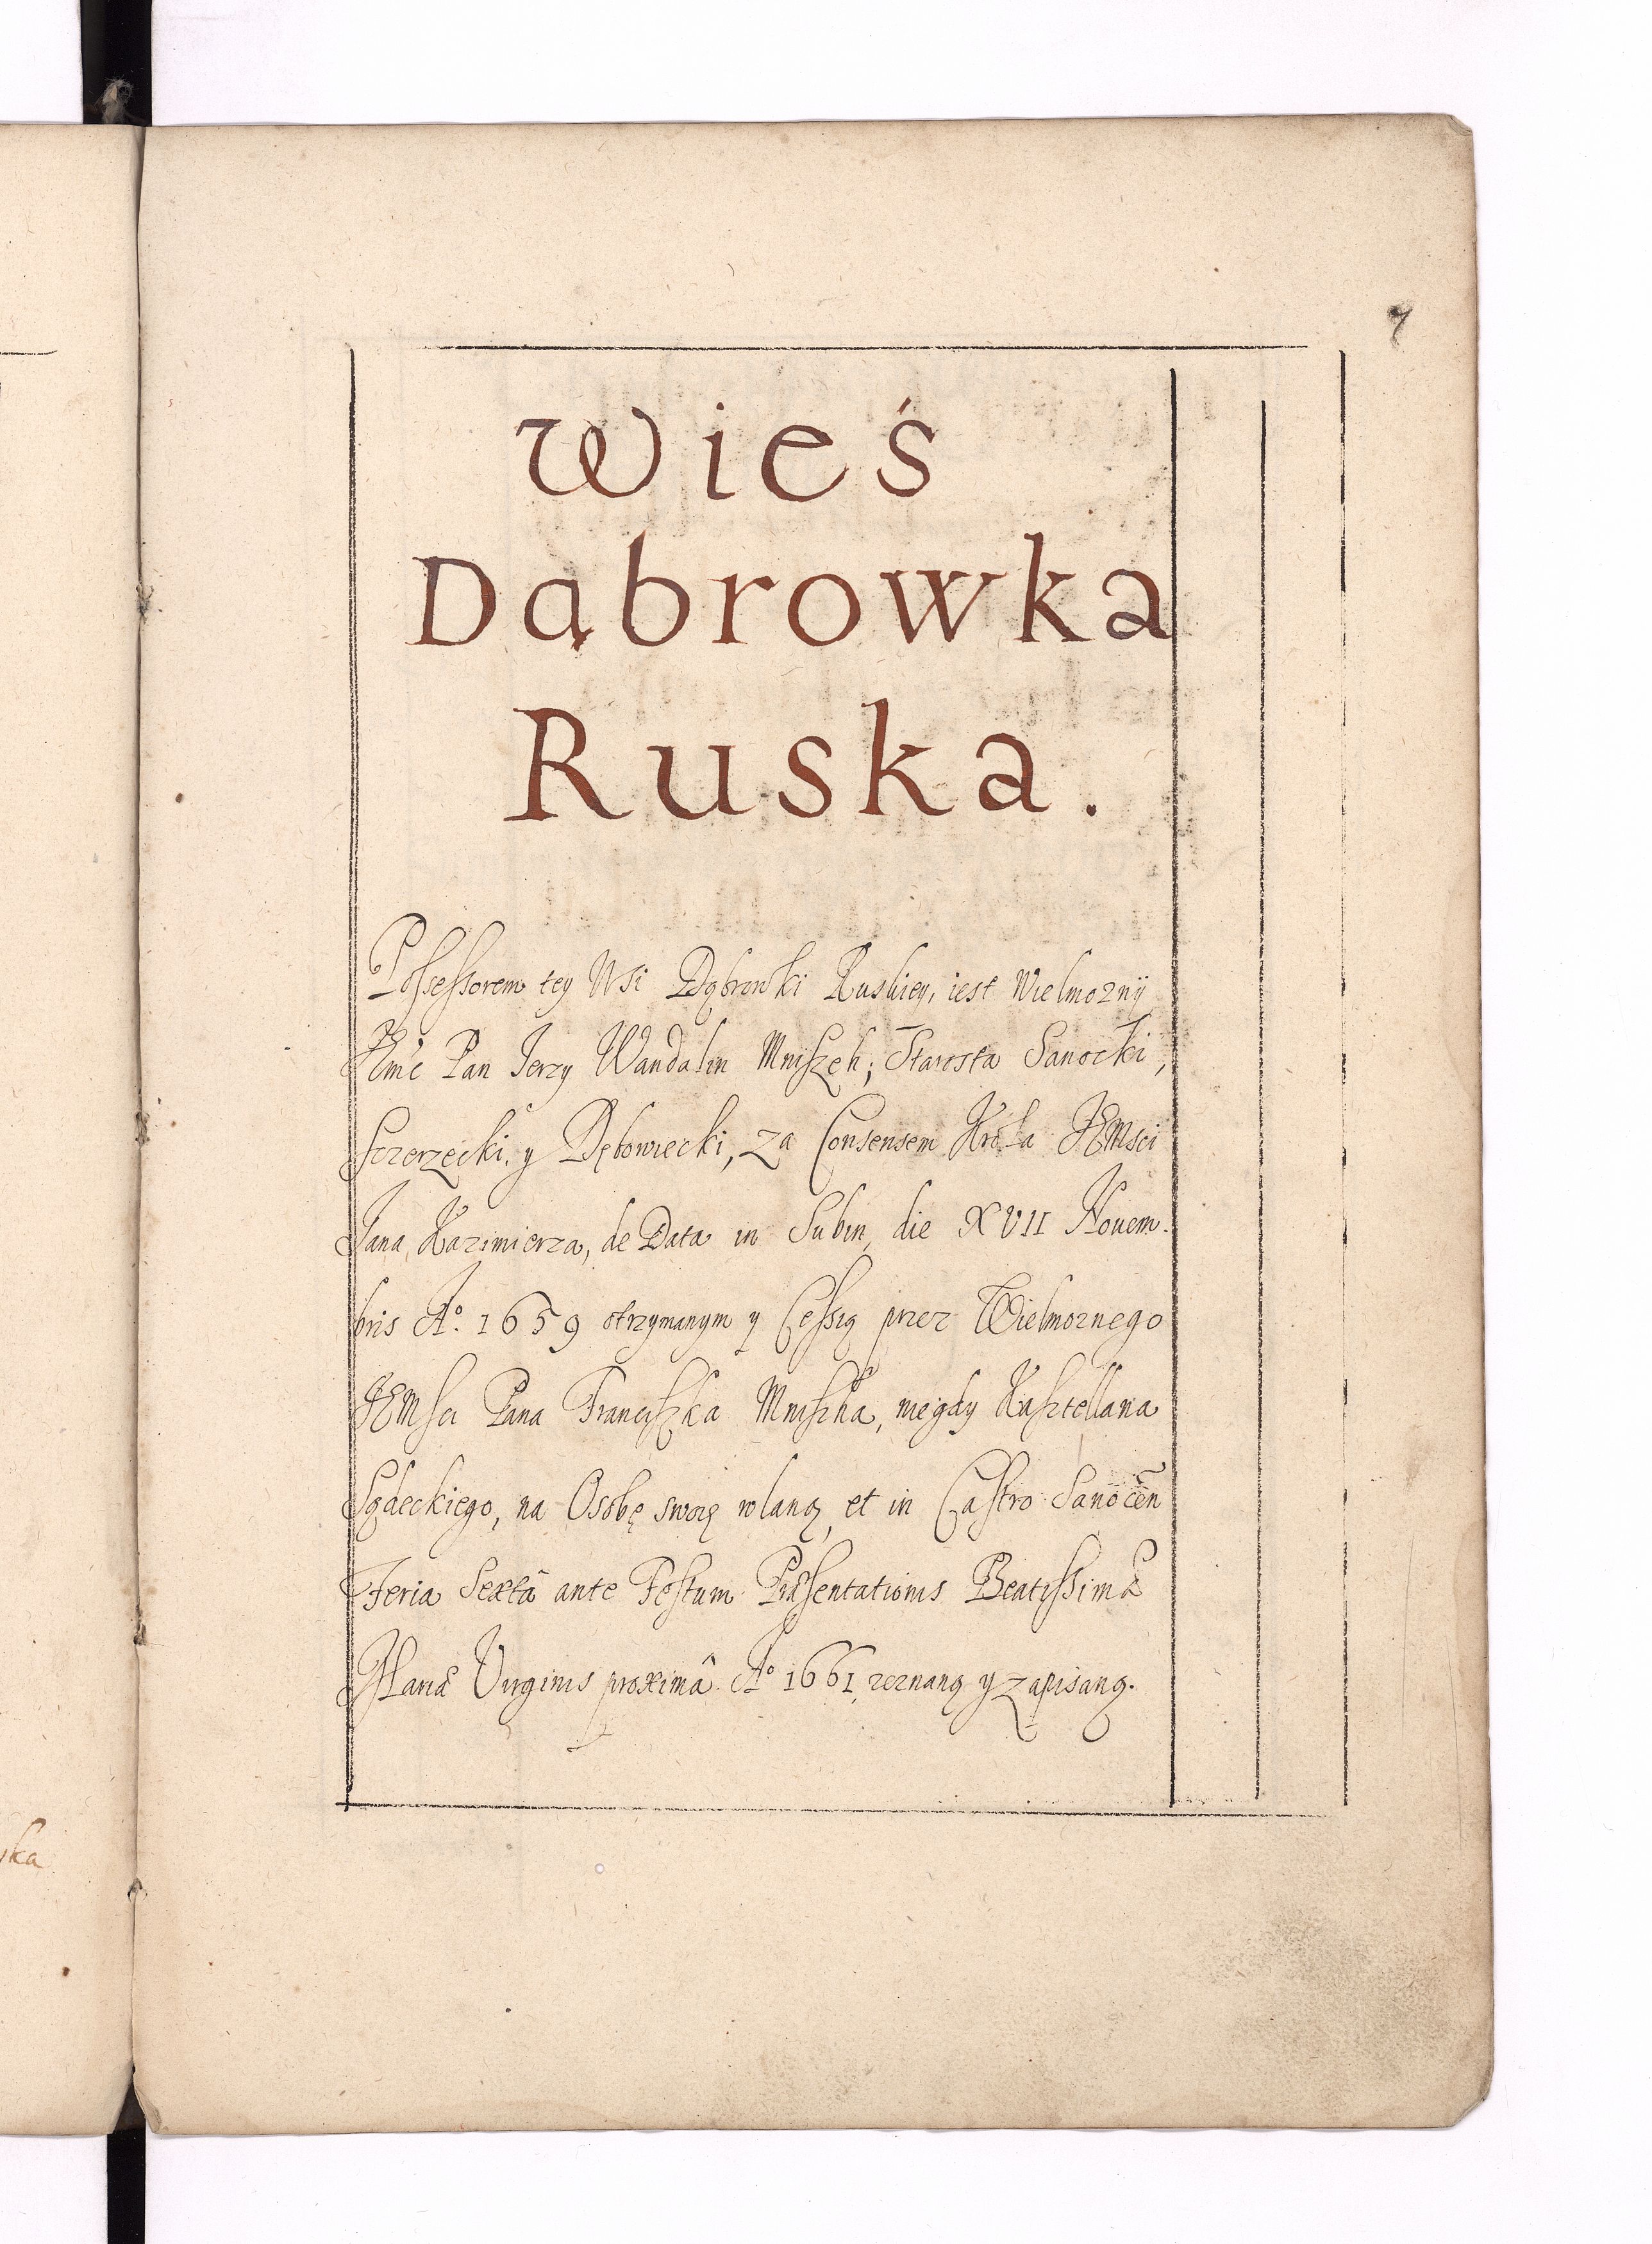 7
Wieś
Dąbrowka
Ruska.
Possessorem tey Wsi Dąbrowki Ruskiey, iest Wielmozny
JEmć Pan Jerzy Wandalin Mniszek; Starosta Sanocki,
Sczerzecki, y Dębowiecki, za Consensem Krola JEMsci
Jana Kazimierza, de Data in Lubin, die XVII Nouem-
bris Aº. 1659 otrzymanym y Cessią przez Wielmoznego
JEMsci Pana Franciszka Mniszka, niegdy Kasztellana
Sądeckiego, na Osobę swoię wlaną, et in Castro Sanocēn
Feria Sextâ ante Festum Præsentationis Beatissimæ
Mariæ Virginis proximâ Aº 1661 zeznaną y zapisaną.
ska